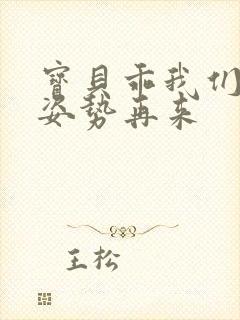 寶貝乖我们
姿势再来
王松